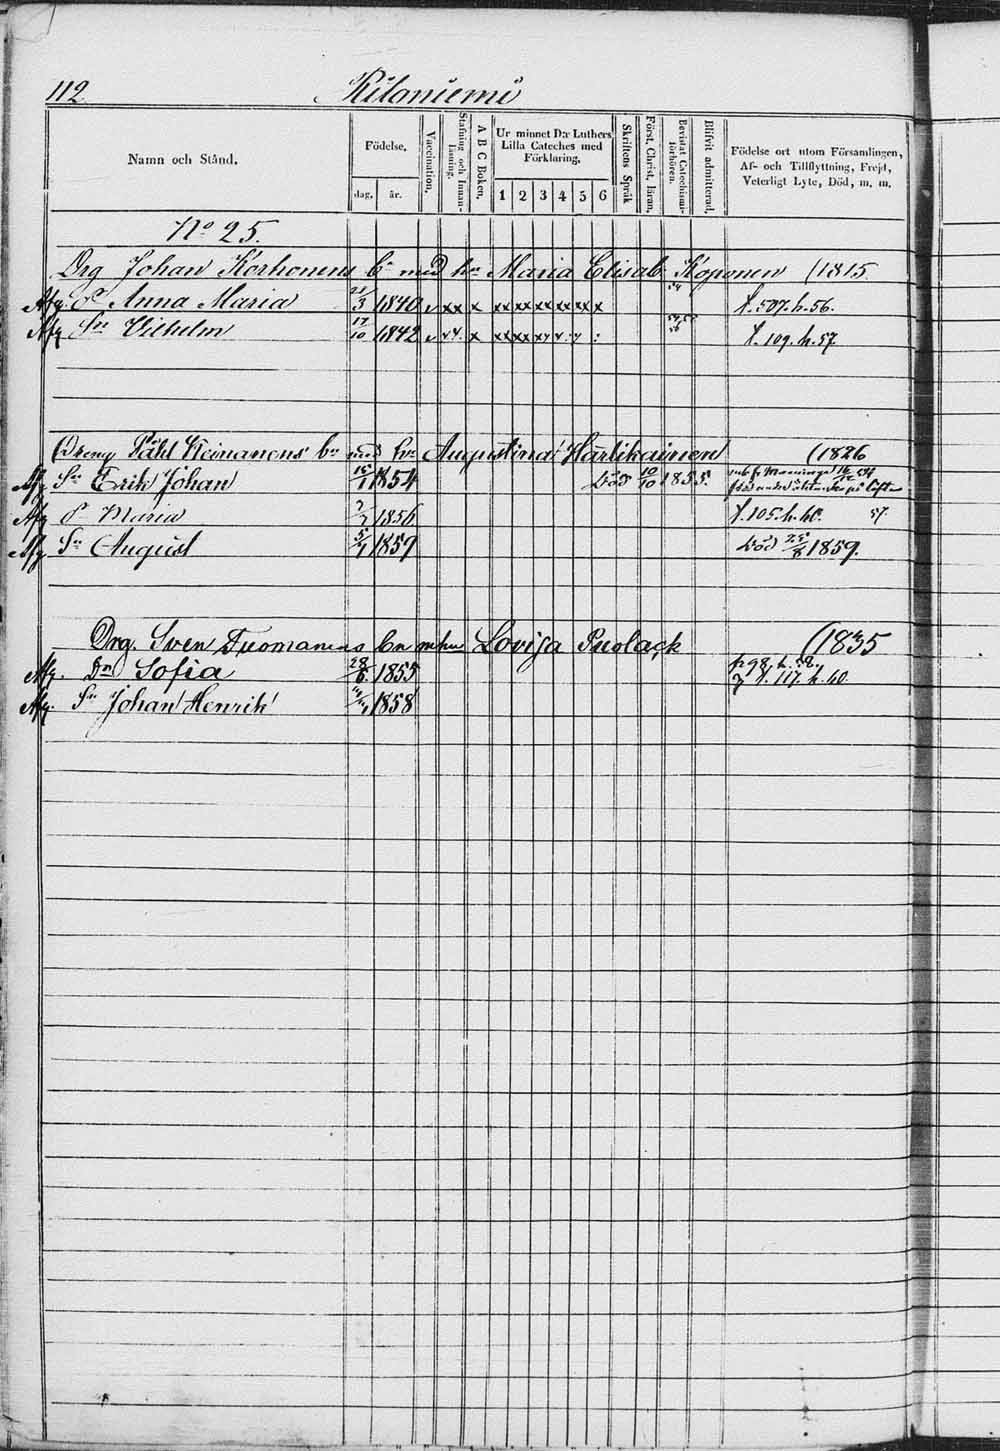 112. Kilaniemi
Namn och Stånd. Födelse. dag, år. Vaccination. Stafning och Innanläsning. A B C Boken. Ur minnet D:r Luthers Lilla Cateches med Förklaring. 1 2 3 4 5 6 Skriftens Språk Först. Christ. läran. Bevistat Catechismiförhören. Blifvit admitterad. Födelse ort utom Församlingen, Af- och Tillflyttning, Frejd, Veterligt Lyte, Död, m. m.
No 25.
Drg Johan Korhonens bn med hu Maria Elisab Koponen (1815
Afg. Anna Maria 21/3 1840 v xx x xx xx xx xx x x 54 f. 507. h. 56.
Afg Sn Vilhelm 17/10 1842 56 f. 109. h. 57.
Dreng Påhl Heinanens bn med hu Augustina Härlikainen (1826
Afg Sn Erik Johan 15/1 1854 Död 10/10 1855.
Afg Maria 1856 f. 105. h. 60. 57.
Afg Sn August 5/1 1859 Död 25/8 1859.
Drg. Sven Tuomanens bn m hu Lovisa Puolack (1835
Afg. Dn Sofia 28/6 1855 fr 98. h. 58. f. 117. h. 60.
Afg. Sn Johan Henrik 1858